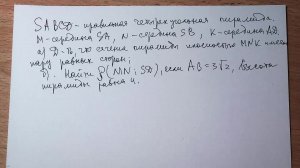 SABCD - правильная четырехугольная пирамида.
M - середина SA, N - середина SB, K - середина AD
а) Д-ть, что сечение пирамиды плоскостью MNK имеет
пару равных сторон;
б) Найти ρ(MN; SD), если AB = 3√2, высота
пирамиды равна 4.